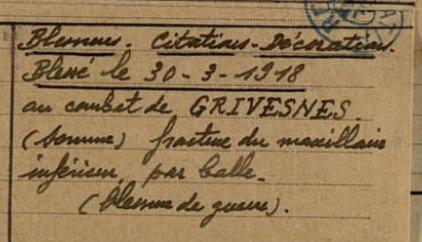 Blessures. Citations-Décorations.
Blessé le 30-3-1918
au combat de GRIVESNES.
(Somme) fracture du maxillaire
inférieur, par balle.
(blessure de guerre).